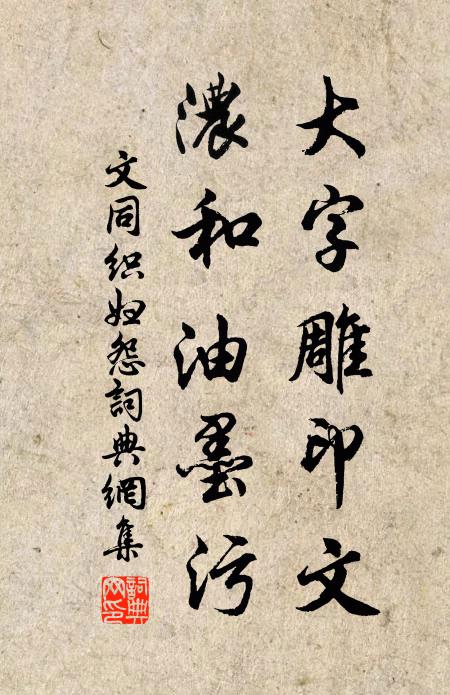 大字雕印文
濃和油墨污
文同織婦怨詞典網集